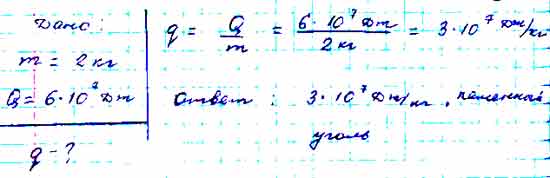 Дано:
m = 2 кг
Q = 6·10⁷ Дж
q - ?
q = Q/m = 6·10⁷ Дж / 2 кг = 3·10⁷ Дж/кг
Ответ: 3·10⁷ Дж/кг, каменный
уголь